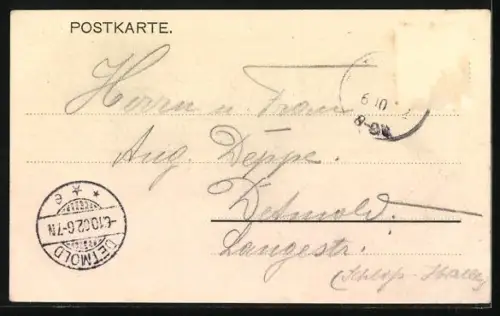 POSTKARTE.
Herrn u. Frau
Aug. Deppe.
Detmold.
Langestr.
6 10
8-9N
DETMOLD
6.10.02.6-7N
* * e